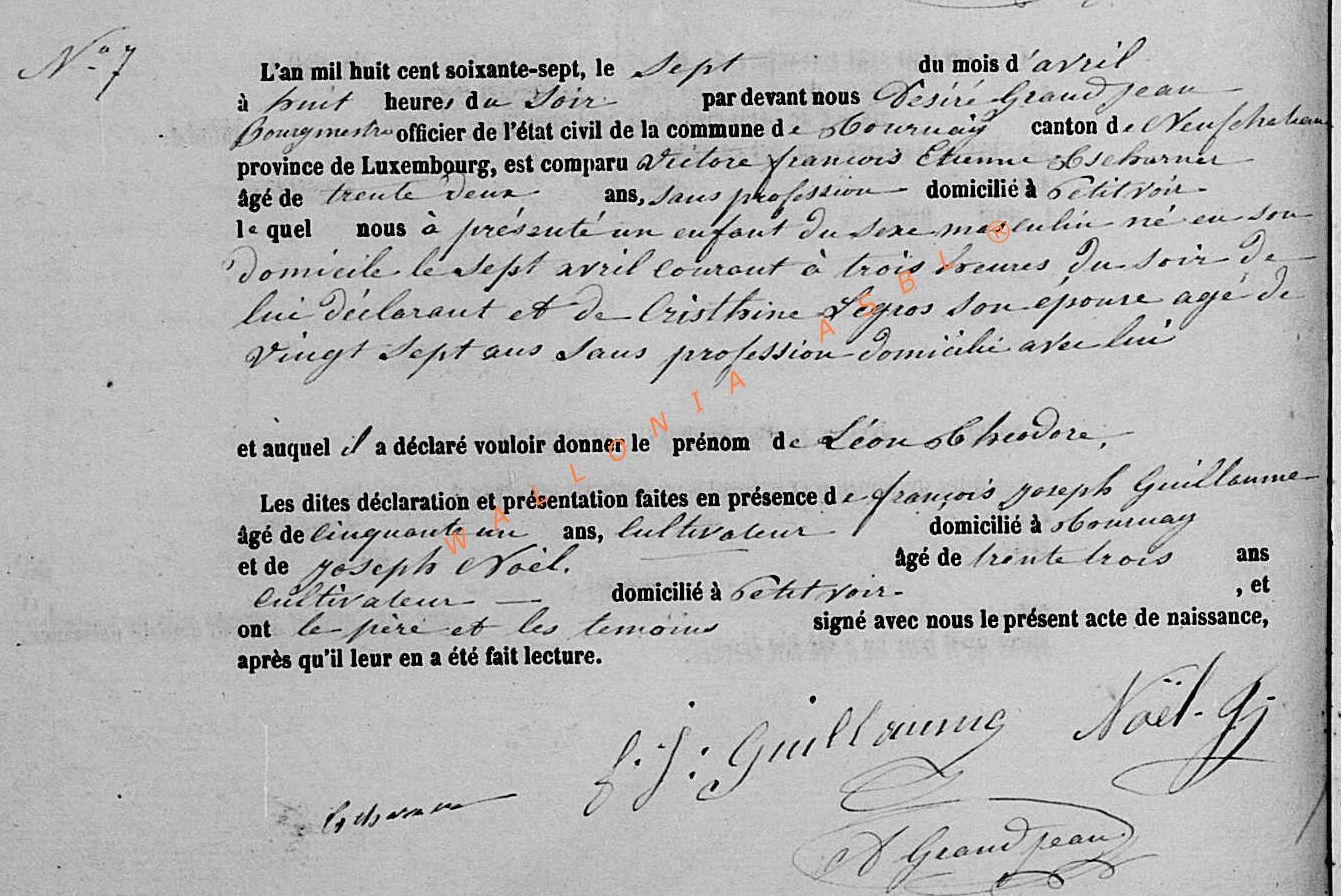 N° 7
L'an mil huit cent soixante-sept, le Sept du mois d'avril
à huit heures du Soir par devant nous Désiré Grandjean
Bourgmestre officier de l'état civil de la commune de Tournay canton de Neufchateau
province de Luxembourg, est comparu Victore françois Etienne Tscharner
âgé de trente deux ans, sans profession domicilié à Petitvoir
le quel nous à présenté un enfant du sexe masculin né en son
domicile le sept avril courant à trois heures du soir de
lui déclarant et de Cristhine Legros son épouse agé de
vingt sept ans sans profession domicilié avec lui
et auquel il a déclaré vouloir donner le prénom de Léon Theodore,
Les dites déclaration et présentation faites en présence de françois joseph Guillaume
âgé de cinquante un ans, cultivateur domicilié à Tournay
et de joseph Noël. âgé de trente trois ans
cultivateur domicilié à Petitvoir , et
ont le père et les temoins signé avec nous le présent acte de naissance,
après qu'il leur en a été fait lecture.
f. j. Guillaume Noël
D Grandjean
WALLONIA ASBL ®